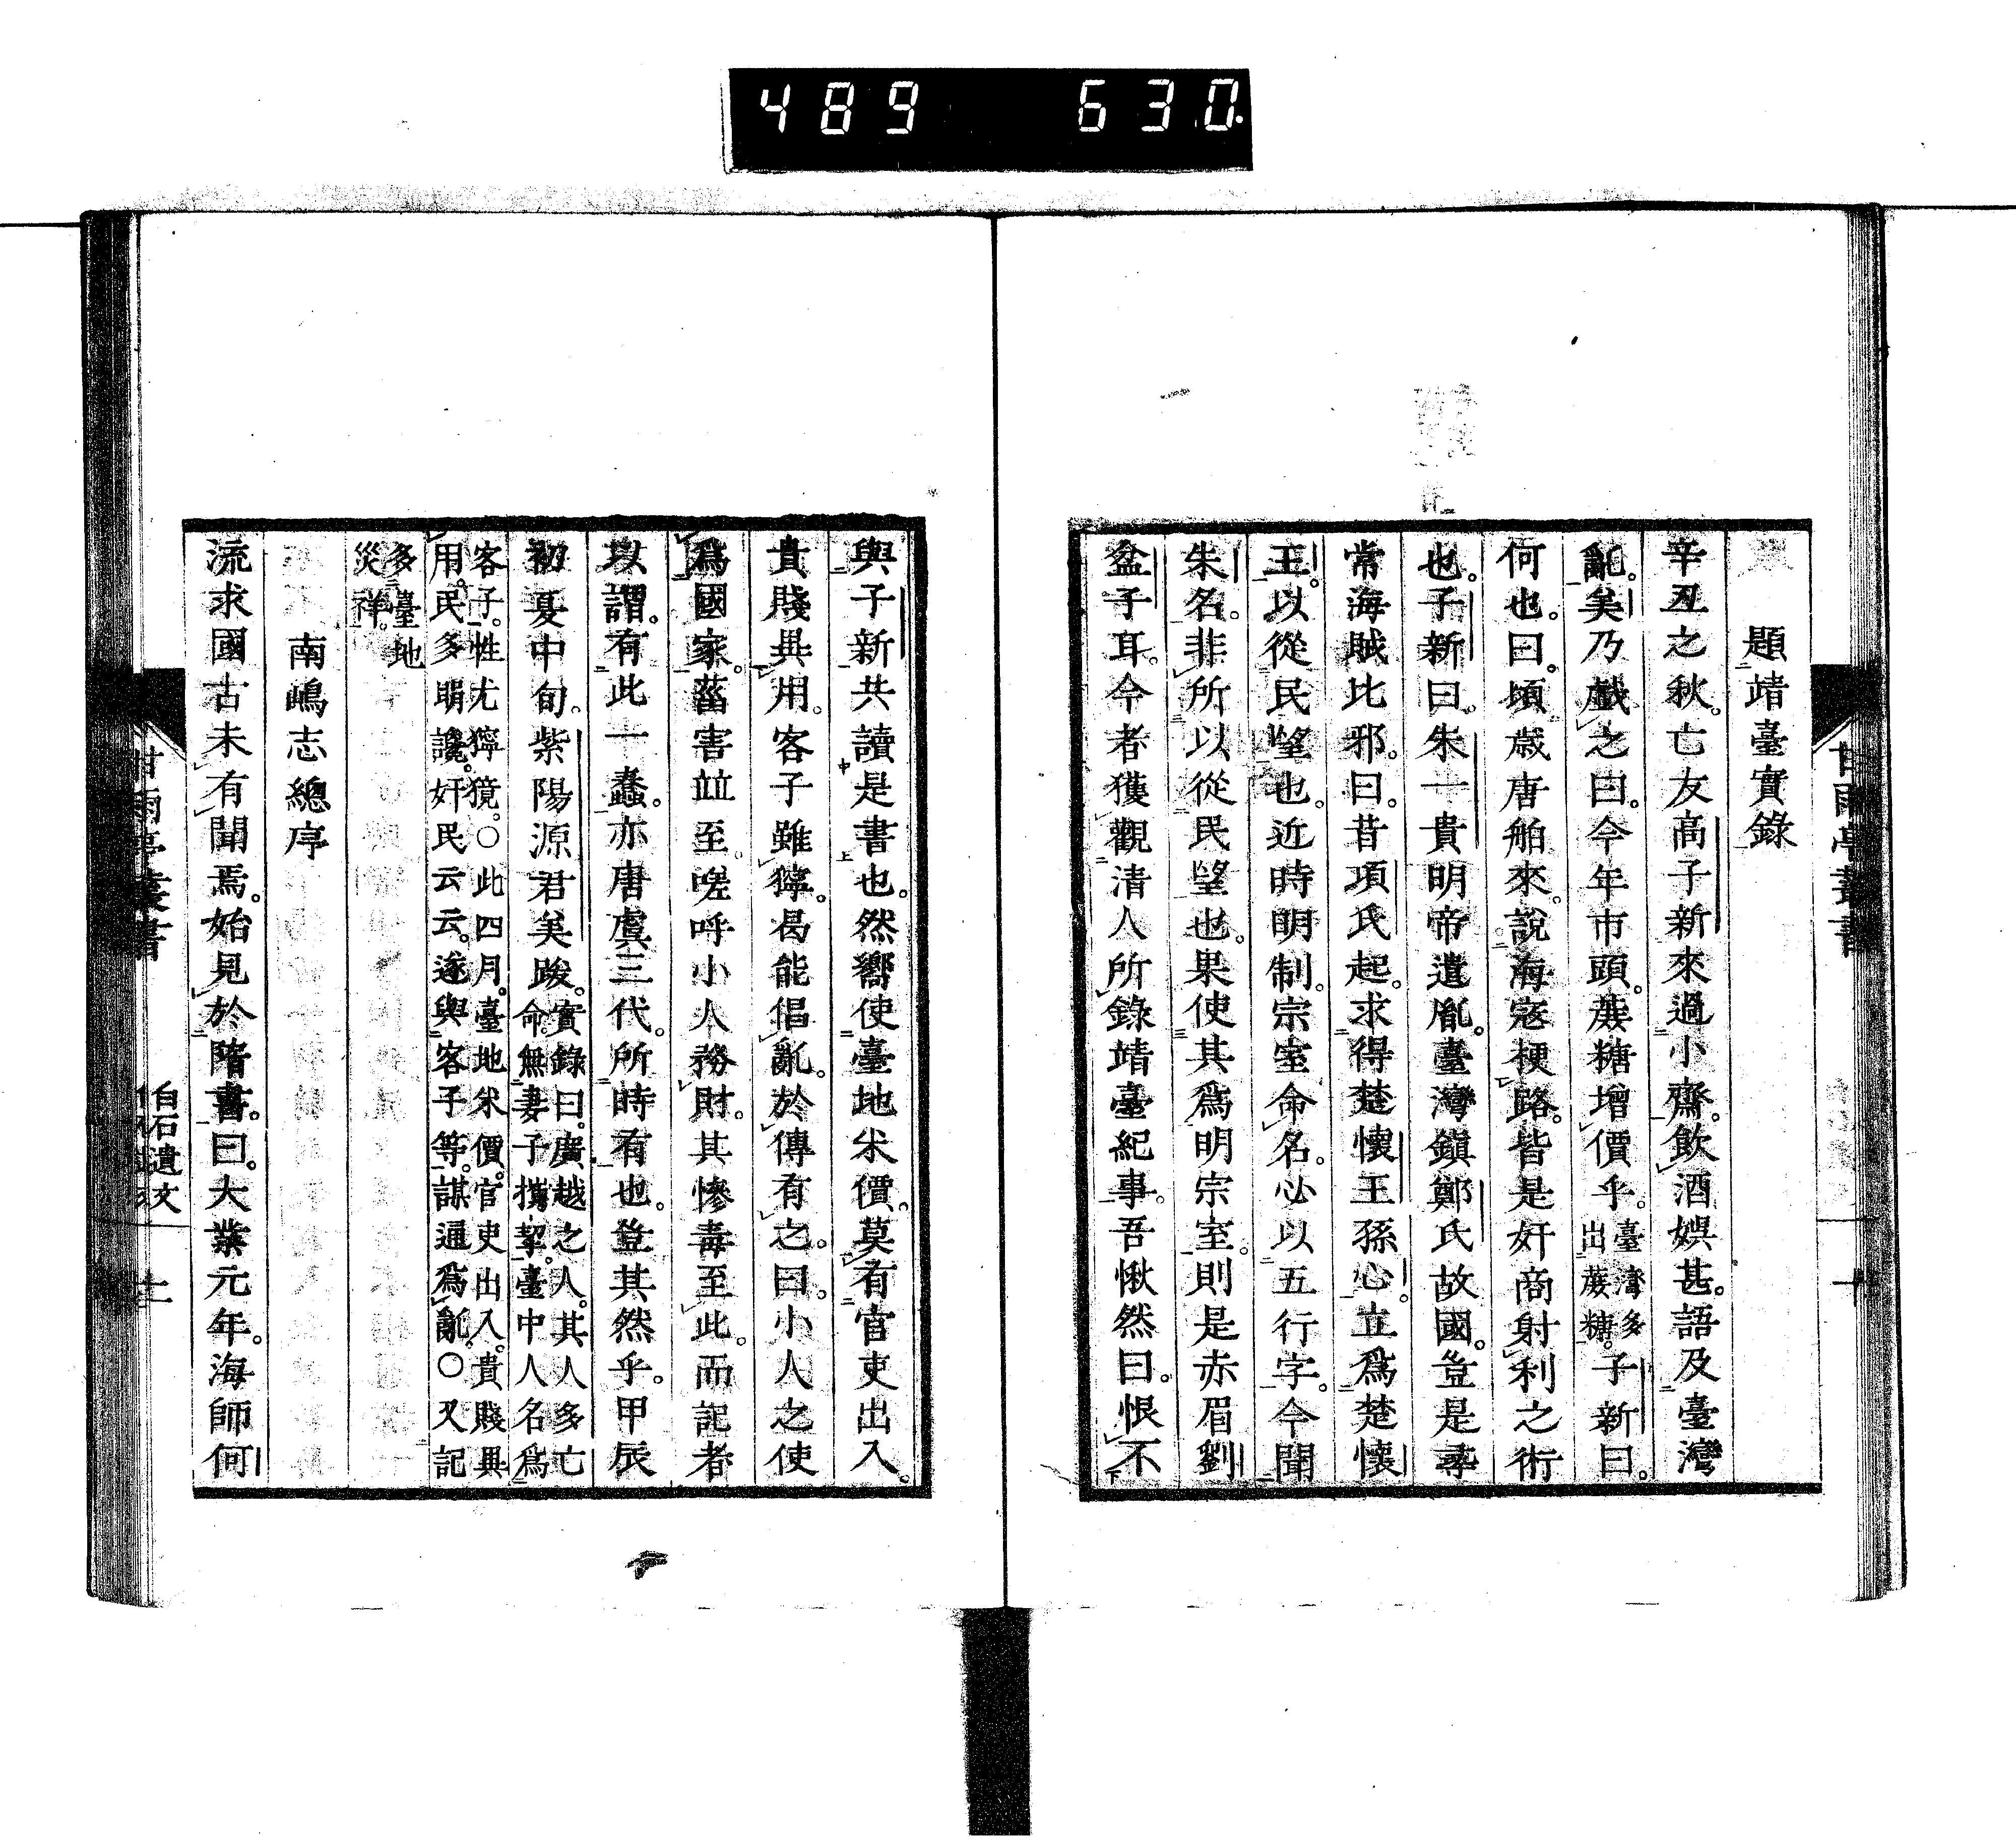 489 630.
題靖臺實錄
辛丑之秋。亡友高子新來過小齋。飲酒娯甚。語及臺灣
亂。矣乃戯之曰。今年市頭。蔗糖增價乎。臺灣多出蔗糖。子新曰。
何也。曰。頃歳唐舶來。說海寇梗路。皆是奸商射利之術
也。子新曰。朱一貴明帝遺胤。臺灣鎭鄭氏故國。豈是尋
常海賊比邪。曰。昔項氏起。求得楚懷王孫心。立爲楚懷
王。以從民望也。近時明制。宗室命名。必以五行字。今聞
朱名。非所以從民望也。果使其爲明宗室。則是赤眉劉
盆子耳。今者獲觀清人所錄靖臺紀事。吾愀然曰。恨不
與子新共讀是書也。然嚮使臺地米價。莫有官吏出入。
貴賤異用。客子雖獰。曷能倡亂。於傳有之。曰。小人之使
爲國家。菑害竝至。嗟呼小人務財。其慘毒至此。而記者
以謂。有此一蠢。亦唐虞三代。所時有也。豈其然乎。甲辰
初夏中旬。紫陽源君美跋。實錄曰。廣越之人。其人多亡命。無妻子攜挈。臺中人名爲
客子。性尤獰獷。○此四月。臺地米價。官吏出入。貴賤異
用。民多胡讒。奸民云云。遂與客子等。謀逼爲亂。○又記
多臺地
災祥。
南嶋志總序
流求國古未有聞焉。始見於隋書。曰。大業元年。海師何
甘雨亭叢書
白石遺文